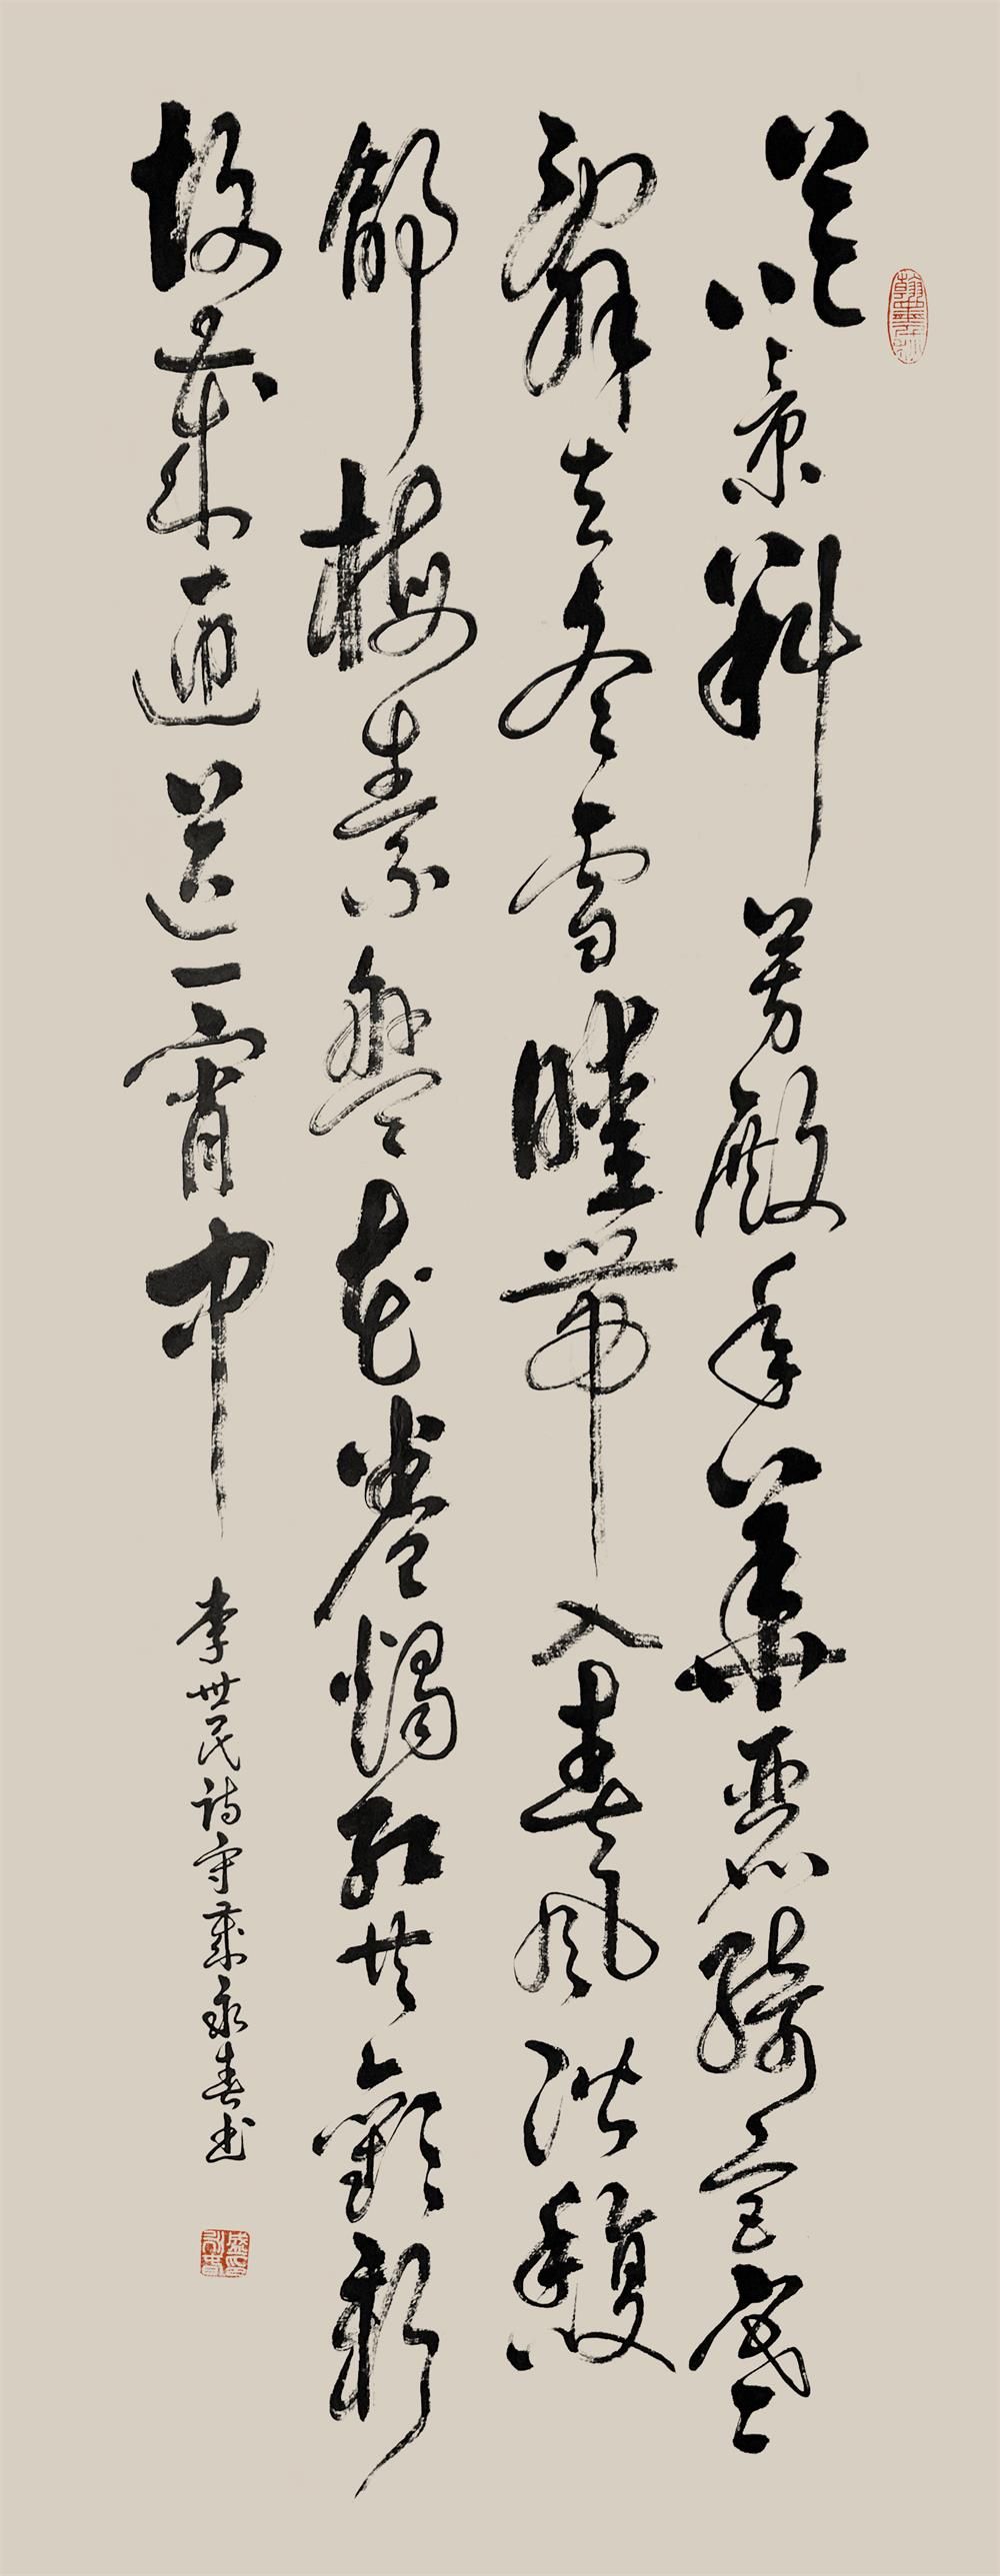 暮景斜芳殿年華麗綺宮寒
辭去冬雪暖帶入春風階馥
舒梅素盤花卷燭紅共歡新
故歲迎送一宵中
李世民詩守歲永春書